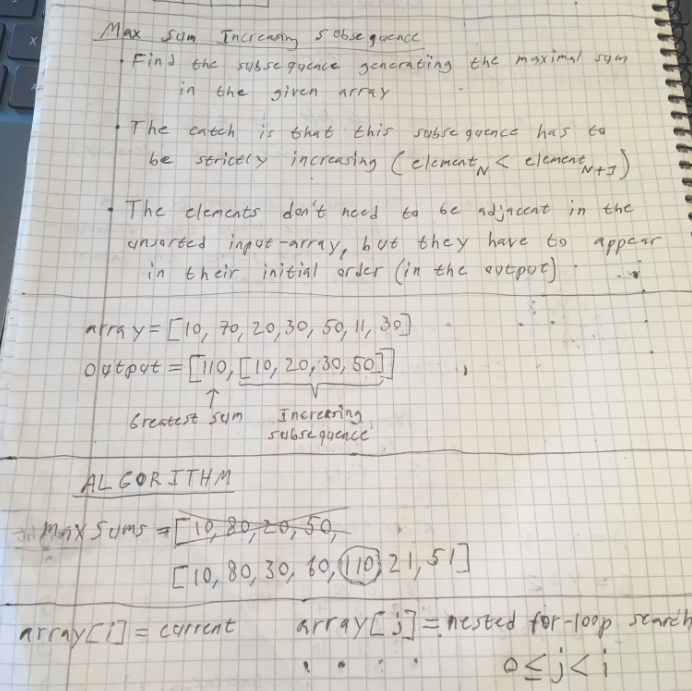 Max Sum Increasing Subsequence
· Find the subsequence generating the maximal sum
in the given array
· The catch is that this subsequence has to
be strictly increasing (element_N < element_N+1)
· The elements don't need to be adjacent in the
unsorted input-array, but they have to appear
in their initial order (in the output)
array = [10, 70, 20, 30, 50, 11, 30]
output = [110, [10, 20, 30, 50]]
↑
Greatest sum Increasing
subsequence
ALGORITHM
Max Sums = [10, 80, 20, 50,
[10, 80, 30, 60, 110, 21, 51]
array[i] = current array[j] = nested for-loop search
0 ≤ j < i